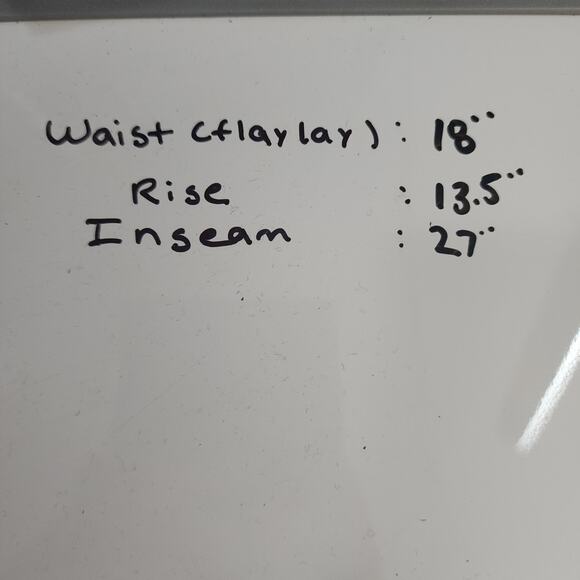 Waist (flaylay) : 18"
Rise : 13.5"
Inseam : 27"